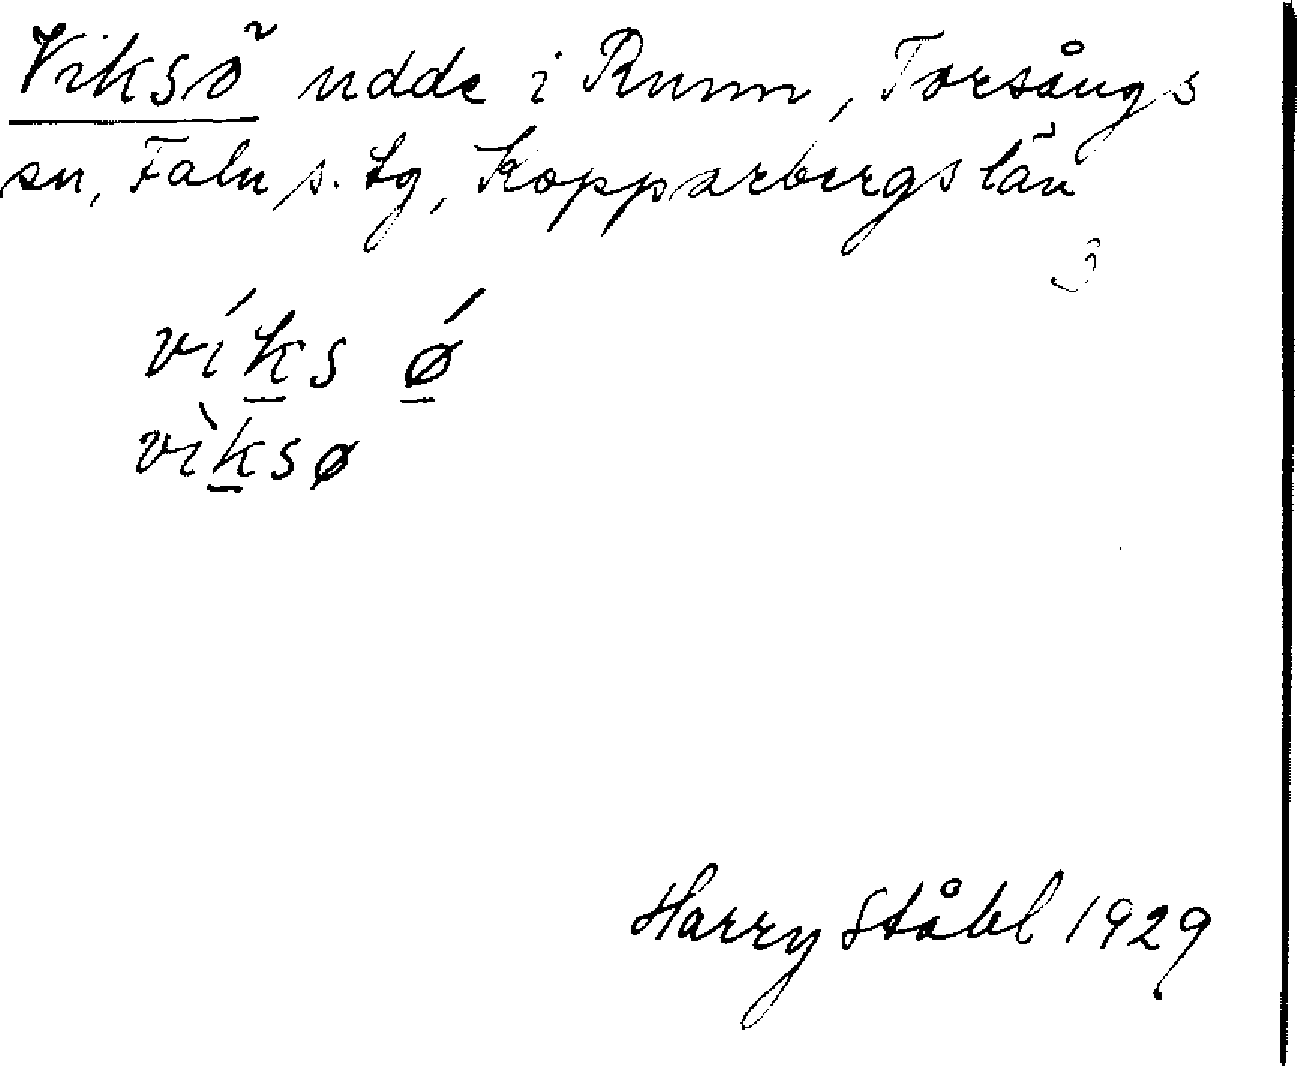 Viksö udde i Runn, Torsångs
sn, Falu s. tg, Kopparbergs län
víks ǿ
vìksø
Harry Ståhl 1929